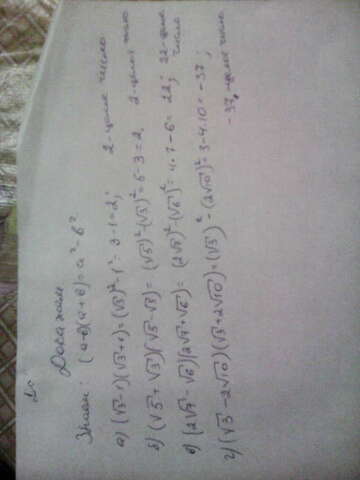 Доказать
Знаем: (a-b)(a+b)=a²-b²
a) (√3-1)(√3+1)=(√3)²-1²=3-1=2; 2-целое число
б) (√5+√3)(√5-√3)=(√5)²-(√3)²=5-3=2, 2-целое число
в) (2√7-√6)(2√7+√6)=(2√7)²-(√6)²=4·7-6=22; 22-целое число
г) (√3-2√10)(√3+2√10)=(√3)²-(2√10)²=3-4·10=-37; -37, целое число